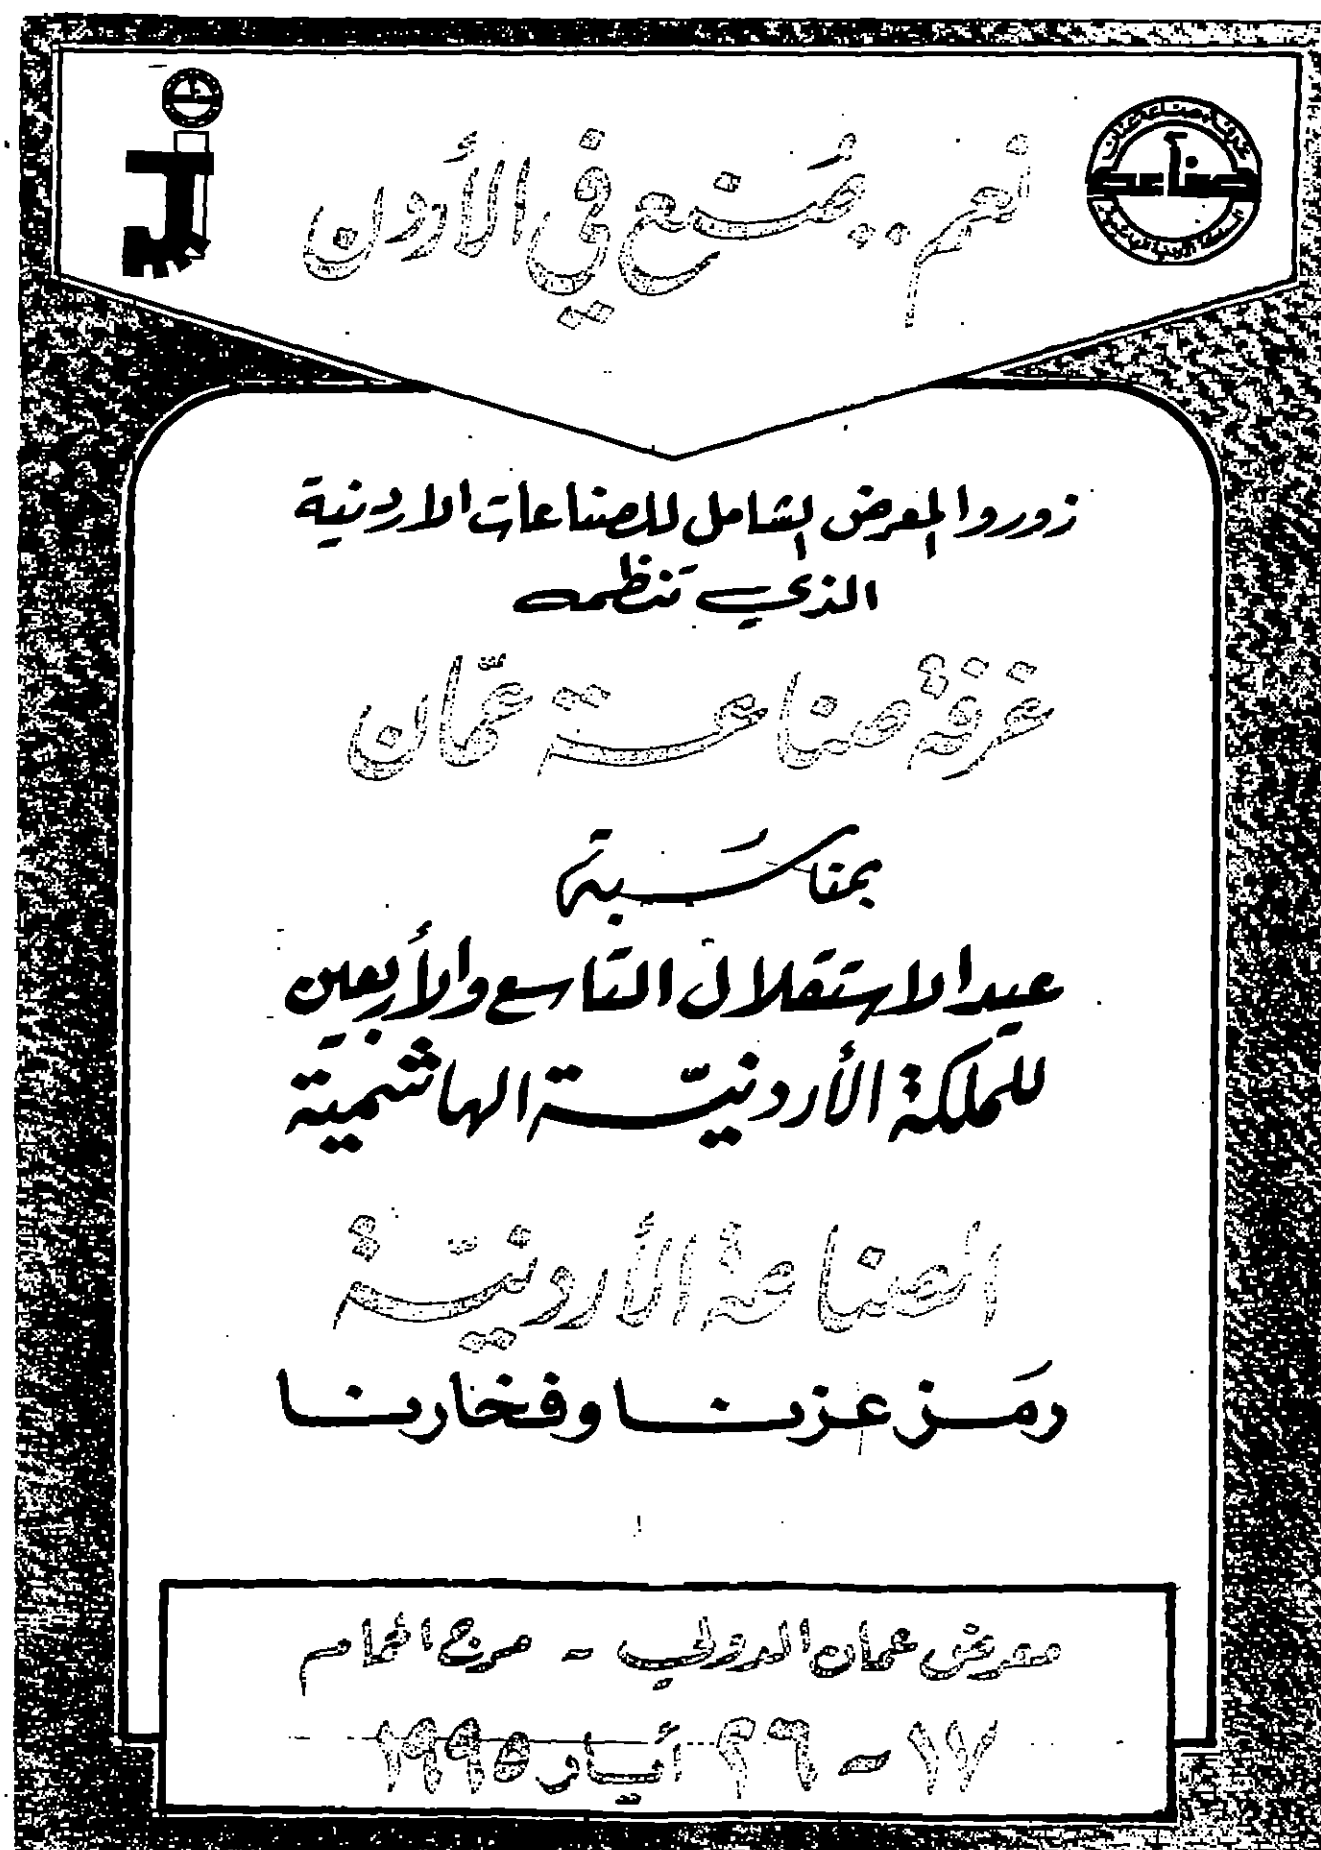 نعم .. صُنع في الأردن
غرفة صناعة عمان
صناعة
المملكة الأردنية الهاشمية
زوروا المعرض الشامل للصناعات الاردنية
الذي تنظمه
غرفة صناعة عمّان
بمناسَبة
عيد الاستقلال التاسع والأربعين
للمملكة الأردنيّة الهاشمية
الصناعة الأردنيّة
رمَز عزنا وفخارنا
معرض عمان الدولي - مرج الحمام
١٧ - ٢٦ أيار ١٩٩٥